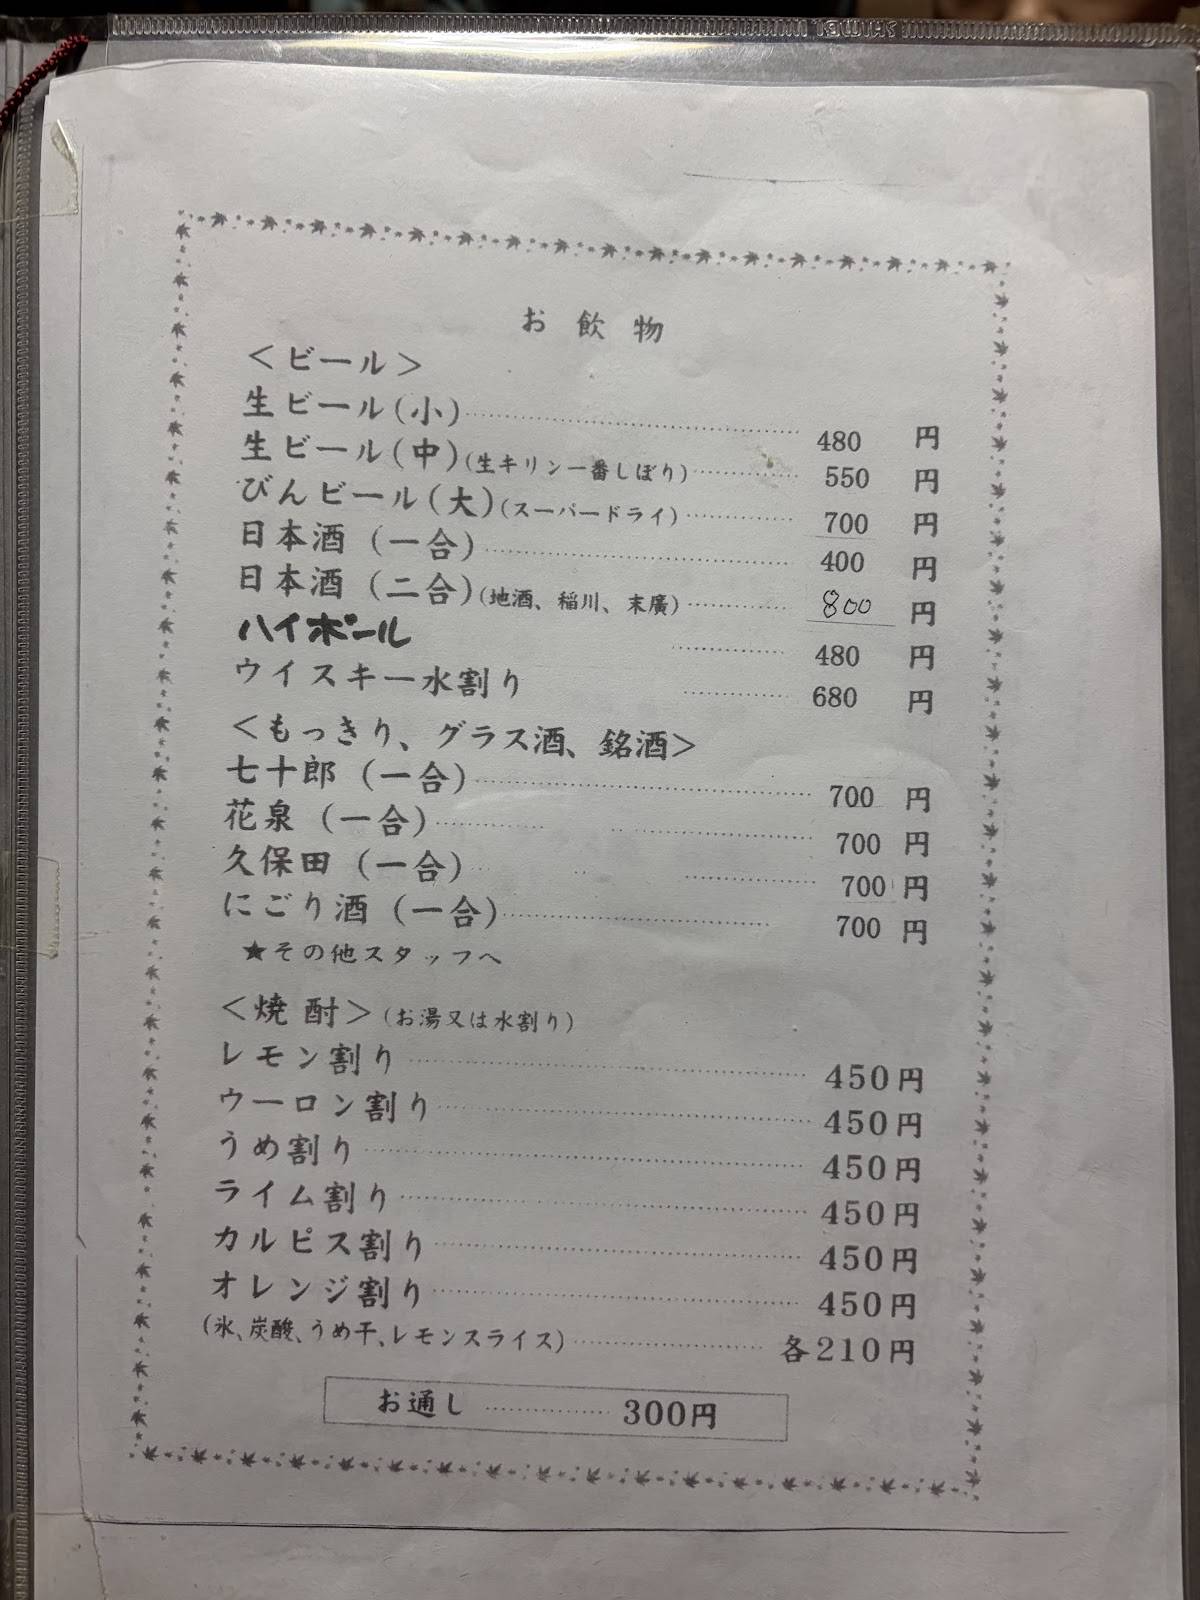 お飲物
<ビール>
生ビール(小)………480 円
生ビール(中)(生キリン一番しぼり)………550 円
びんビール(大)(スーパードライ)………700 円
日本酒(一合)………400 円
日本酒(二合)(地酒、稲川、末廣)………800 円
ハイボール………480 円
ウイスキー水割り………680 円
<もっきり、グラス酒、銘酒>
七十郎(一合)………700 円
花泉(一合)………700 円
久保田(一合)………700 円
にごり酒(一合)………700 円
★その他スタッフへ
<焼酎>(お湯又は水割り)
レモン割り………450円
ウーロン割り………450円
うめ割り………450円
ライム割り………450円
カルピス割り………450円
オレンジ割り………450円
(氷、炭酸、うめ干、レモンスライス)………各210円
お通し………300円